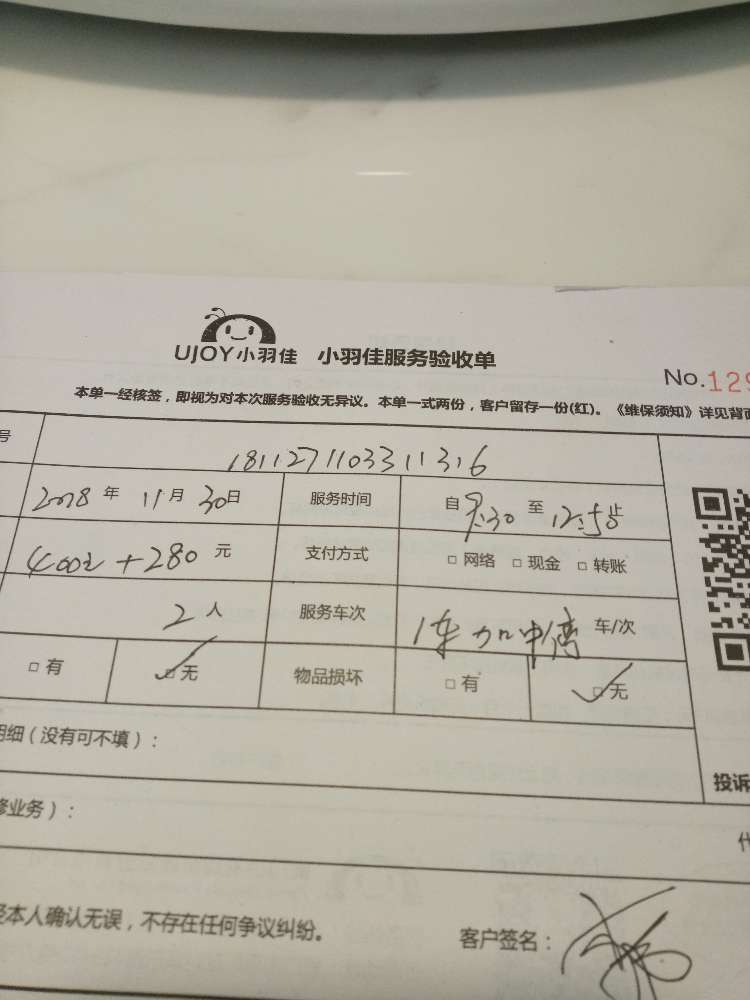 UJOY小羽佳 小羽佳服务验收单
No.129
本单一经核签，即视为对本次服务验收无异议。本单一式两份，客户留存一份(红)。《维保须知》详见背面
号 1811271103311316
2018年 11月 30日 服务时间 自 8:30 至 12:50止
400元+280元 支付方式 □网络 □现金 □转账
2人 服务车次 1车加中 车/次
□有 □无 物品损坏 □有 □无
明细（没有可不填）：
修业务）：
投诉
经本人确认无误，不存在任何争议纠纷。 客户签名：